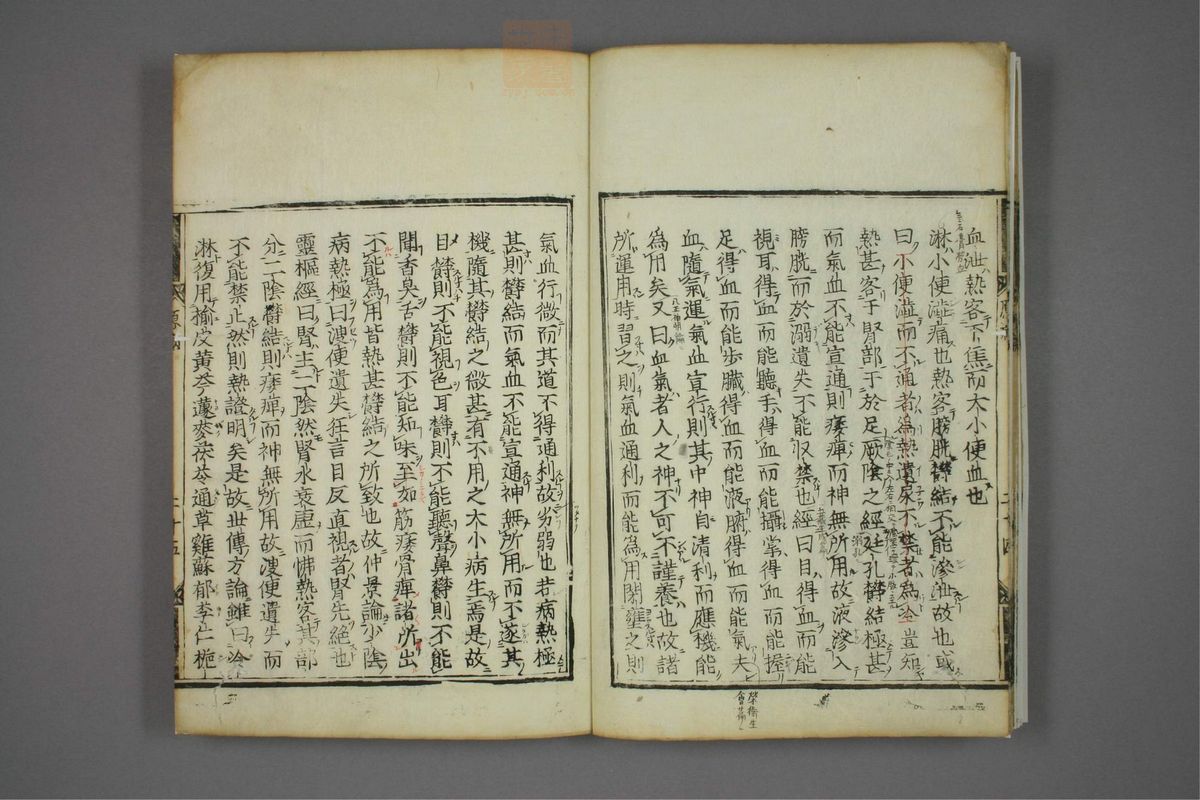 血泄熱客下焦而大小便血也
淋小便澁痛也熱客膀胱欝結不能滲泄故也或
曰小便澁而不通者為熱遺尿不禁者為冷豈知
熱甚客于腎部干於足厥陰之經廷孔欝結極甚
而氣血不能宣通則痿痺而神無所用故液滲入
膀胱而於溺遺失不能収禁也經曰目得血而能
視耳得血而能聽手得血而能攝掌得血而能握
足得血而能歩臓得血而能液腑得血而能氣夫
血隨氣運氣血宣行則其中神自清利而應機能
為用矣又曰血氣者人之神不可不謹養也故諸
所運用時習之則氣血通利而能為用閉壅之則
氣血行微而其道不得通利故劣弱也若病熱極
甚則欝結而氣血不能宣通神無所用而不遂其
機隨其欝結之微甚有不用之大小病生焉是故
目欝則不能視色耳欝則不能聽聲鼻欝則不能
聞香臭舌欝則不能知味至如筋痿骨痺諸所出
不能為用皆熱甚欝結之所致也故仲景論少陰
病熱極曰溲便遺失狂言目反直視者腎先絶也
靈樞經曰腎主二陰然腎水衰虚而怫熱客其部
分二陰欝結則痿痺而神無所用故溲便遺失而
不能禁止然則熱證明矣是故世傳方論雖曰冷
淋復用榆皮黄芩蘧麥茯苓通草雞蘇郁李仁梔